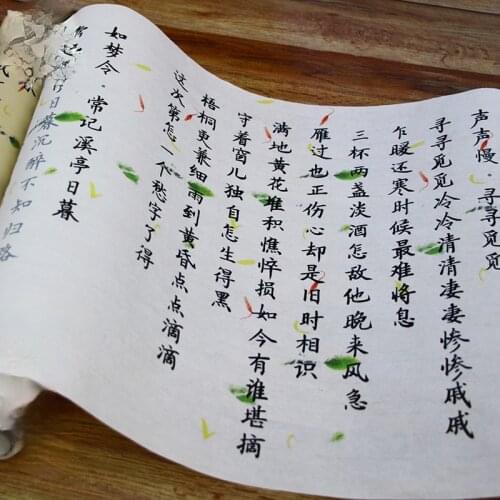 声声慢·寻寻觅觅
寻寻觅觅冷冷清清凄凄惨惨戚戚
乍暖还寒时候最难将息
三杯两盏淡酒怎敌他晚来风急
雁过也正伤心却是旧时相识
满地黄花堆积憔悴损如今有谁堪摘
守着窗儿独自怎生得黑
梧桐更兼细雨到黄昏点点滴滴
这次第怎一个愁字了得
如梦令·常记溪亭日暮
常记溪亭日暮沉醉不知归路